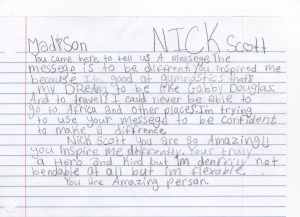 Madison NICK Scott
You came here to tell us A messege the
messege is to be diffrent. You inspired me
because I'm good at gymnastics that's
my DREAM to be like Gabby Douglas.
And to travel? I could never be able to
go to Africa and other places. I'm trying
to use your messege to be confident
to make a diffrence.
Nick Scott you are so Amazing!
you inspire me defrently. Your truly
a Hero and Kind but im not
bendable at all but im flexable.
You are Amazing person.